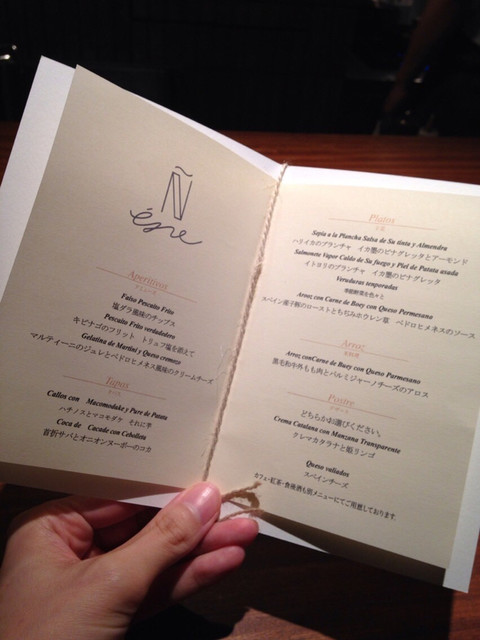 Ñ
éñe
Aperitivos
Falso Pescaito Frito
塩ダラ風味のチップス
Pescaito Frito verdadero
キビナゴのフリット トリュフ塩を添えて
Gelatina de Martini y Queso cremoso
マルティーニのジュレとペドロヒメネス風味のクリームチーズ
Tapas
Callos con Macomodake y Pure de Patata
ハチノスとマコモダケ それに芋
Coca de Cacade con Cebolleta
首折サバとオニオンヌーボーのコカ
Platos
Sepia a la Plancha Salsa de Su tinta y Almendra
ハリイカのプランチャ イカ墨のピナグレッタとアーモンド
Salmonete Vapor Caldo de Su fuego y Piel de Patata asada
イトヨリのプランチャ イカ墨のピナグレッタ
Veruduras temporadas
季節野菜を色々と
Arroz con Carne de Buey con Queso Parmesano
Arroz
Arroz conCarne de Buey con Queso Parmesano
黒毛和牛外もも肉とパルミジャーノチーズのアロス
Postre
デザート
どちらかお選びください。
Crema Catalana con Manzana Transparente
クレマカタラナと姫リンゴ
Queso valiados
スペインチーズ
カフェ・紅茶・食後酒も別メニューにてご用意しております